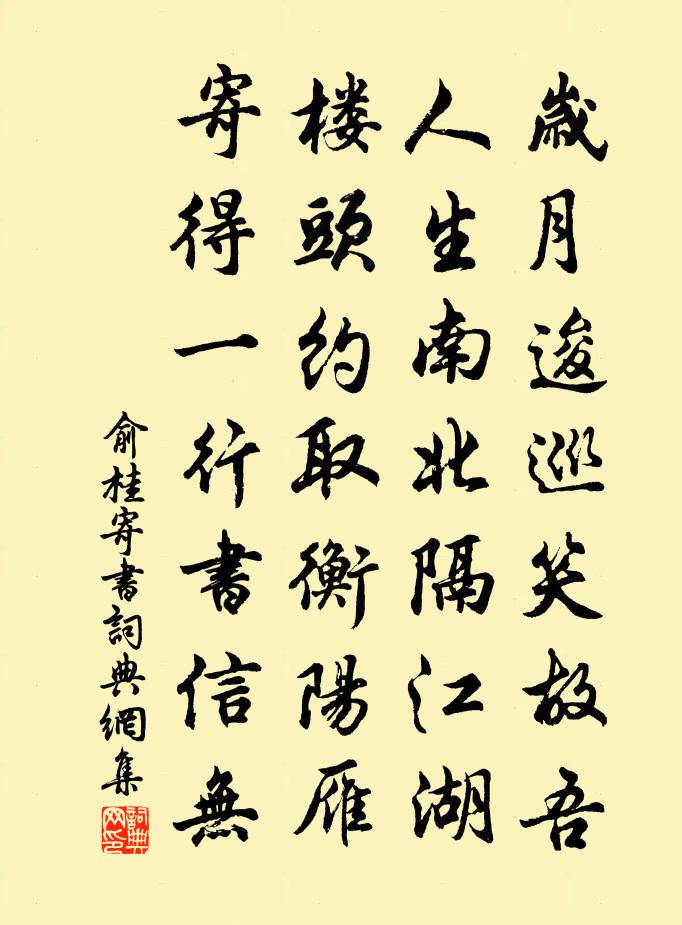 歲月逡巡笑故吾
人生南北隔江湖
楼頭約取衡陽雁
寄得一行書信無
俞桂寄書詞典網集
詞典网印